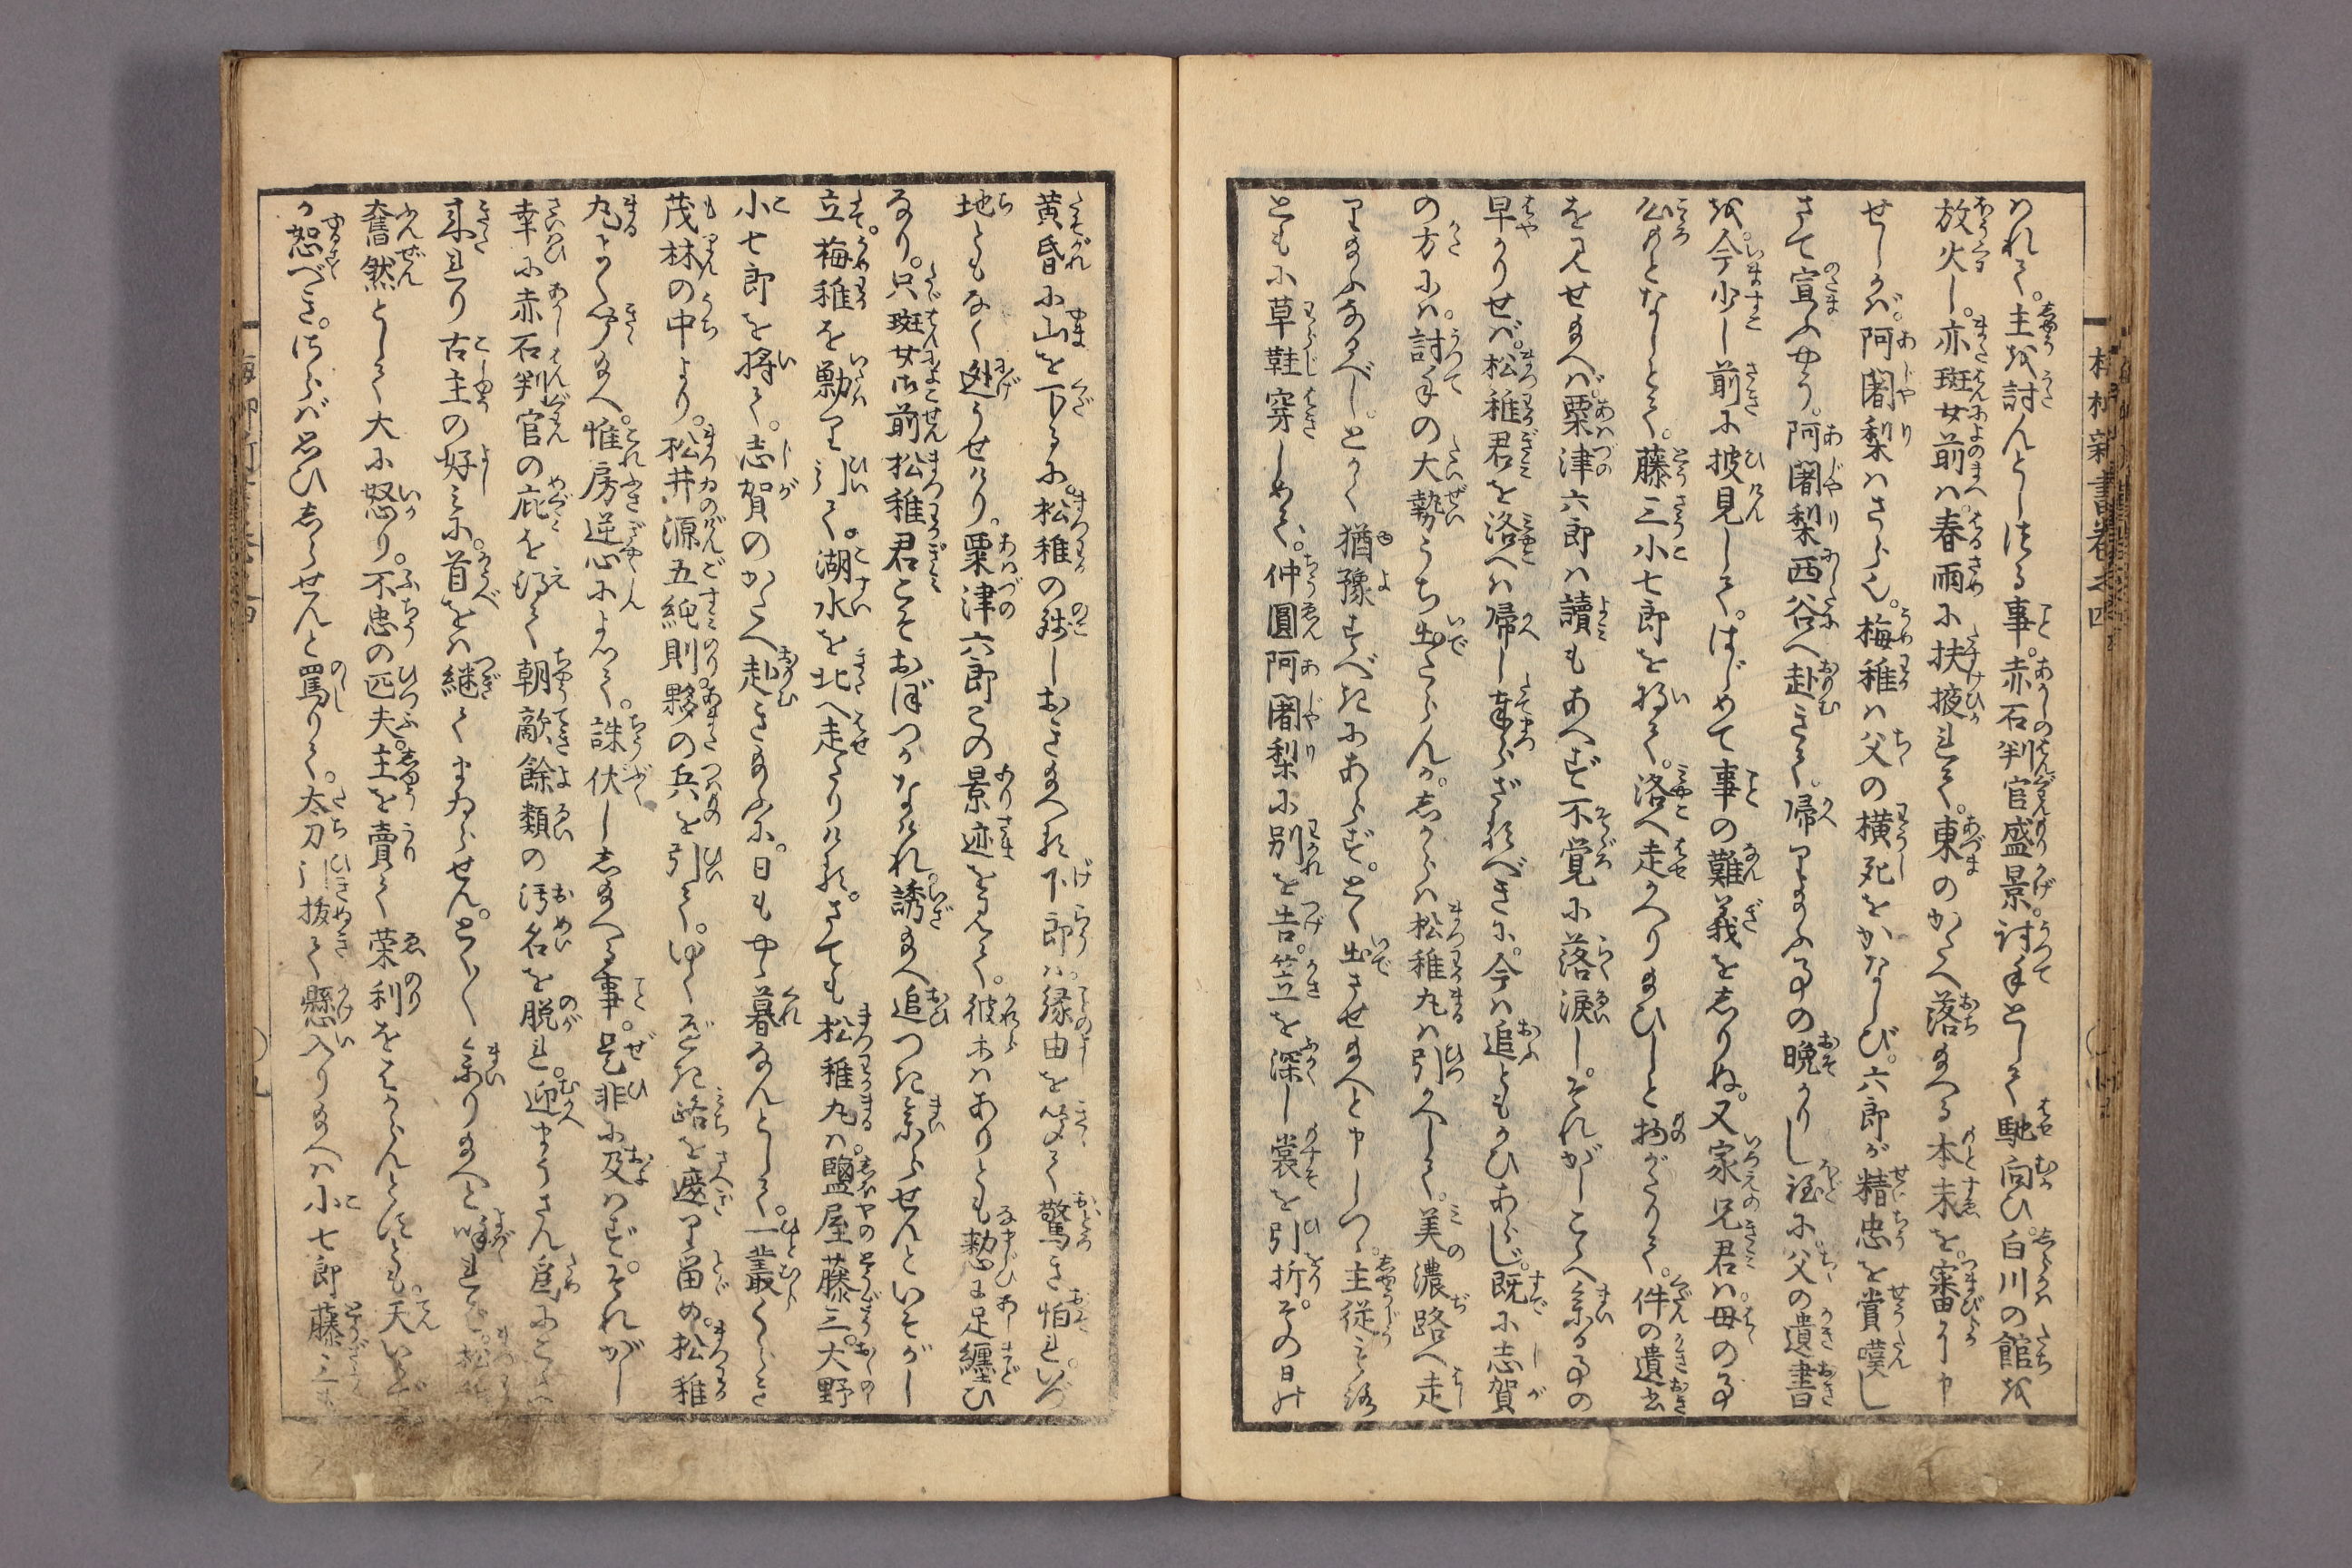 梅柳新書巻之四
られて。主を討んとしぬる事。赤石判官盛景。討手として馳向ひ。白川の館を
放火し。亦斑女前は。春雨に扶掖れて。東のかたへ落給へる本末を。審に申
せしかば。阿闍梨はさらなり。梅稚は父の横死をかなしび。六郎が精忠を賞嘆し
さて宣ふやう。阿闍梨西谷へ赴きて。帰り給ふ事の晩かりし程に。父の遺書
を。今少し前に披見して。はじめて事の難義をしりぬ。又家兄君は。母の事
心もとなしとて。藤三小七郎を将て。洛へ走かへり給ひしと物がたりて。件の遺書
を見せ給へば。粟津六郎は讀もあへず。不覚に落涙し。それがしこゝへ参る事の
早かりせば。松稚君を洛へは帰し奉らざるべきに。今は追ともかひあらじ。既に志賀
の方には。討手の大勢うち出たらんか。しからは松稚丸は引かへして。美濃路へ走
り給ふなるべし。とかく猶豫すべきにあらず。とく出させ給へと申しつゝ。主従みな
ともに草鞋穿しめて。仲圓阿闍梨に別を告。笠を深し裳を引折。その日の
黄昏に山を下るに。松稚の残しおき給へる下郎は。縁由を聞て驚き怕れ。いづ
地ともなく迯うせけり。粟津六郎この景迹を見て。彼等はありとも懃に足纏ひ
なり。只斑女御前松稚君こそおぼつかなけれ。誘給へ追つき参らせんといそがし
立。梅稚を勦り引て。湖水を北へ走りける。さても松稚丸は。鹽屋藤三。大野
小七郎を将て。志賀のかたへ赴き給ふに。日もやゝ暮なんとして。一叢くらき
茂林の中より。松井源五純則。夥の兵を引て。ゆくべき路を遮り畄め。松稚
丸とく聞給へ。惟房逆心によつて。誅伏し給へる事。是非に及はず。それがし
幸に赤石判官の庇を得て。朝敵餘類の汚名を脱れ。迎まうさん為にこゝへ
来れり。古主の好みに。首をは継てまゐらせん。とく〳〵参り給へと呼れば。松稚
奮然として大に怒り。不忠の匹夫。主を賣て栄利をはからんとすとも。天いかで
か恕べき。けふぞ思ひしらせんと罵りて。太刀引抜て懸入り給へは。小七郎藤三も